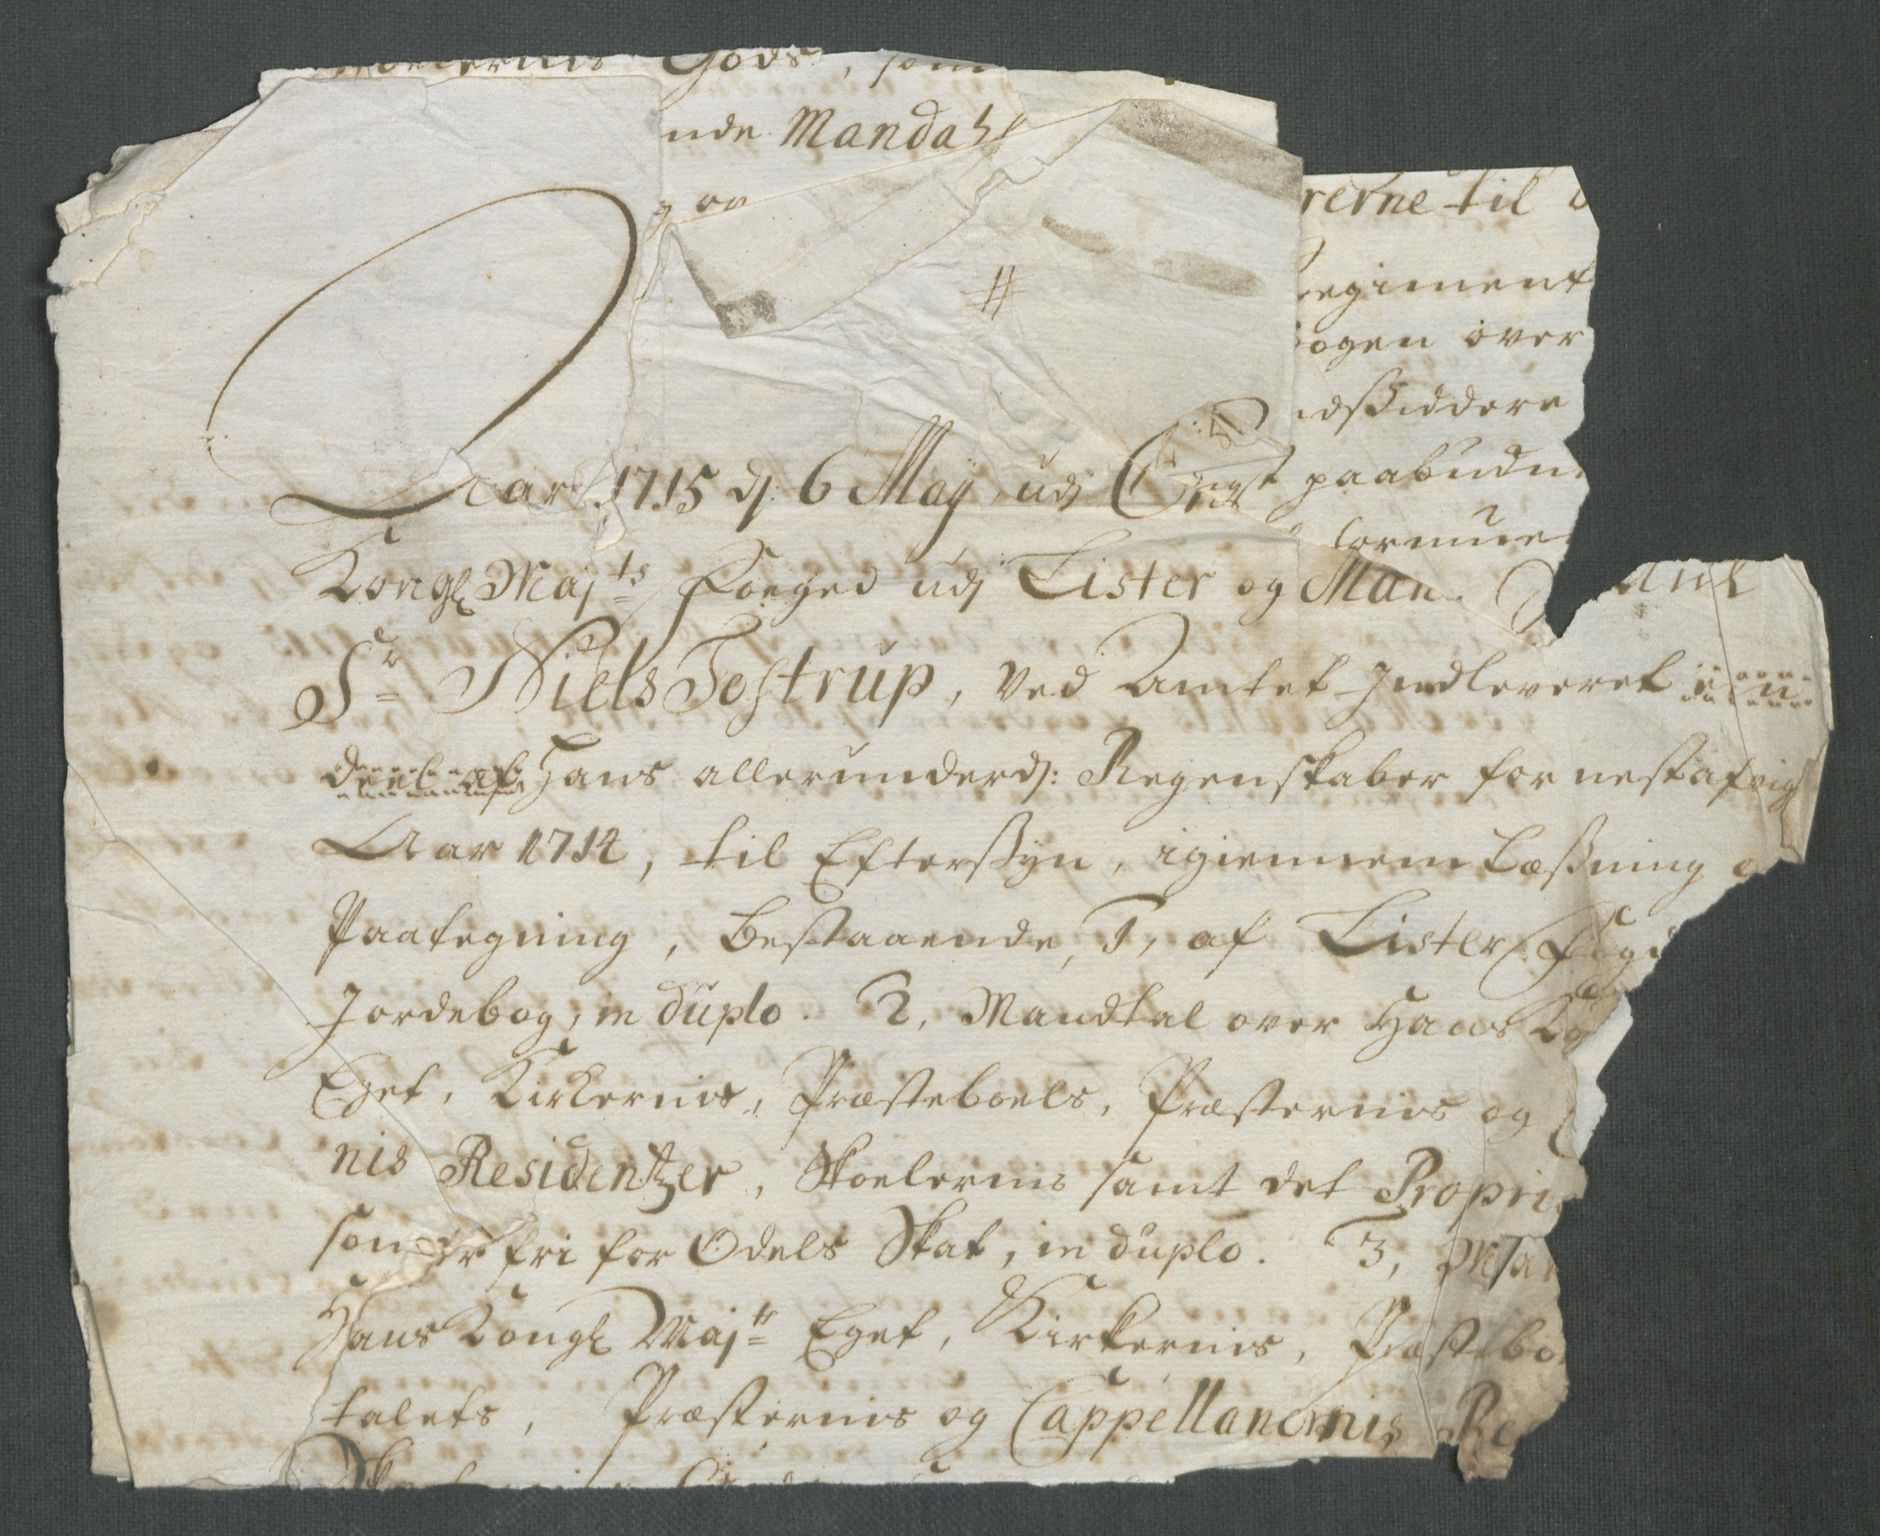 Gods, som
nde Mandahls
og
rerne til
Regiment
bogen over
idsSiddere
paabudne
formue
Aar 1715 dj: 6 Maij, udj
Kongl Majts Foeged udj Lister og Man
Sr Niels Tostrup, ved Amtet Indleveret een
deel af Hans allerunderdj: Regenskaber for nestafvigt
Aar 1714, til Eftersyn, igiennem Læssning
Paategning, bestaaende, 1, af Lister Fogd
Jordebog, in duplo. 2, Mandtal over Hans Ko
Eget, Kirkernis, Præsteboels, Præsternis og
nis Residentzer, Skoelernis samt det Propri
som er fri for Odels Skat, in duplo. 3, Man
Hans Kongl Majts Eget, Kirkernis, Præstebo
talets, Præsternis og Cappellanernis Re